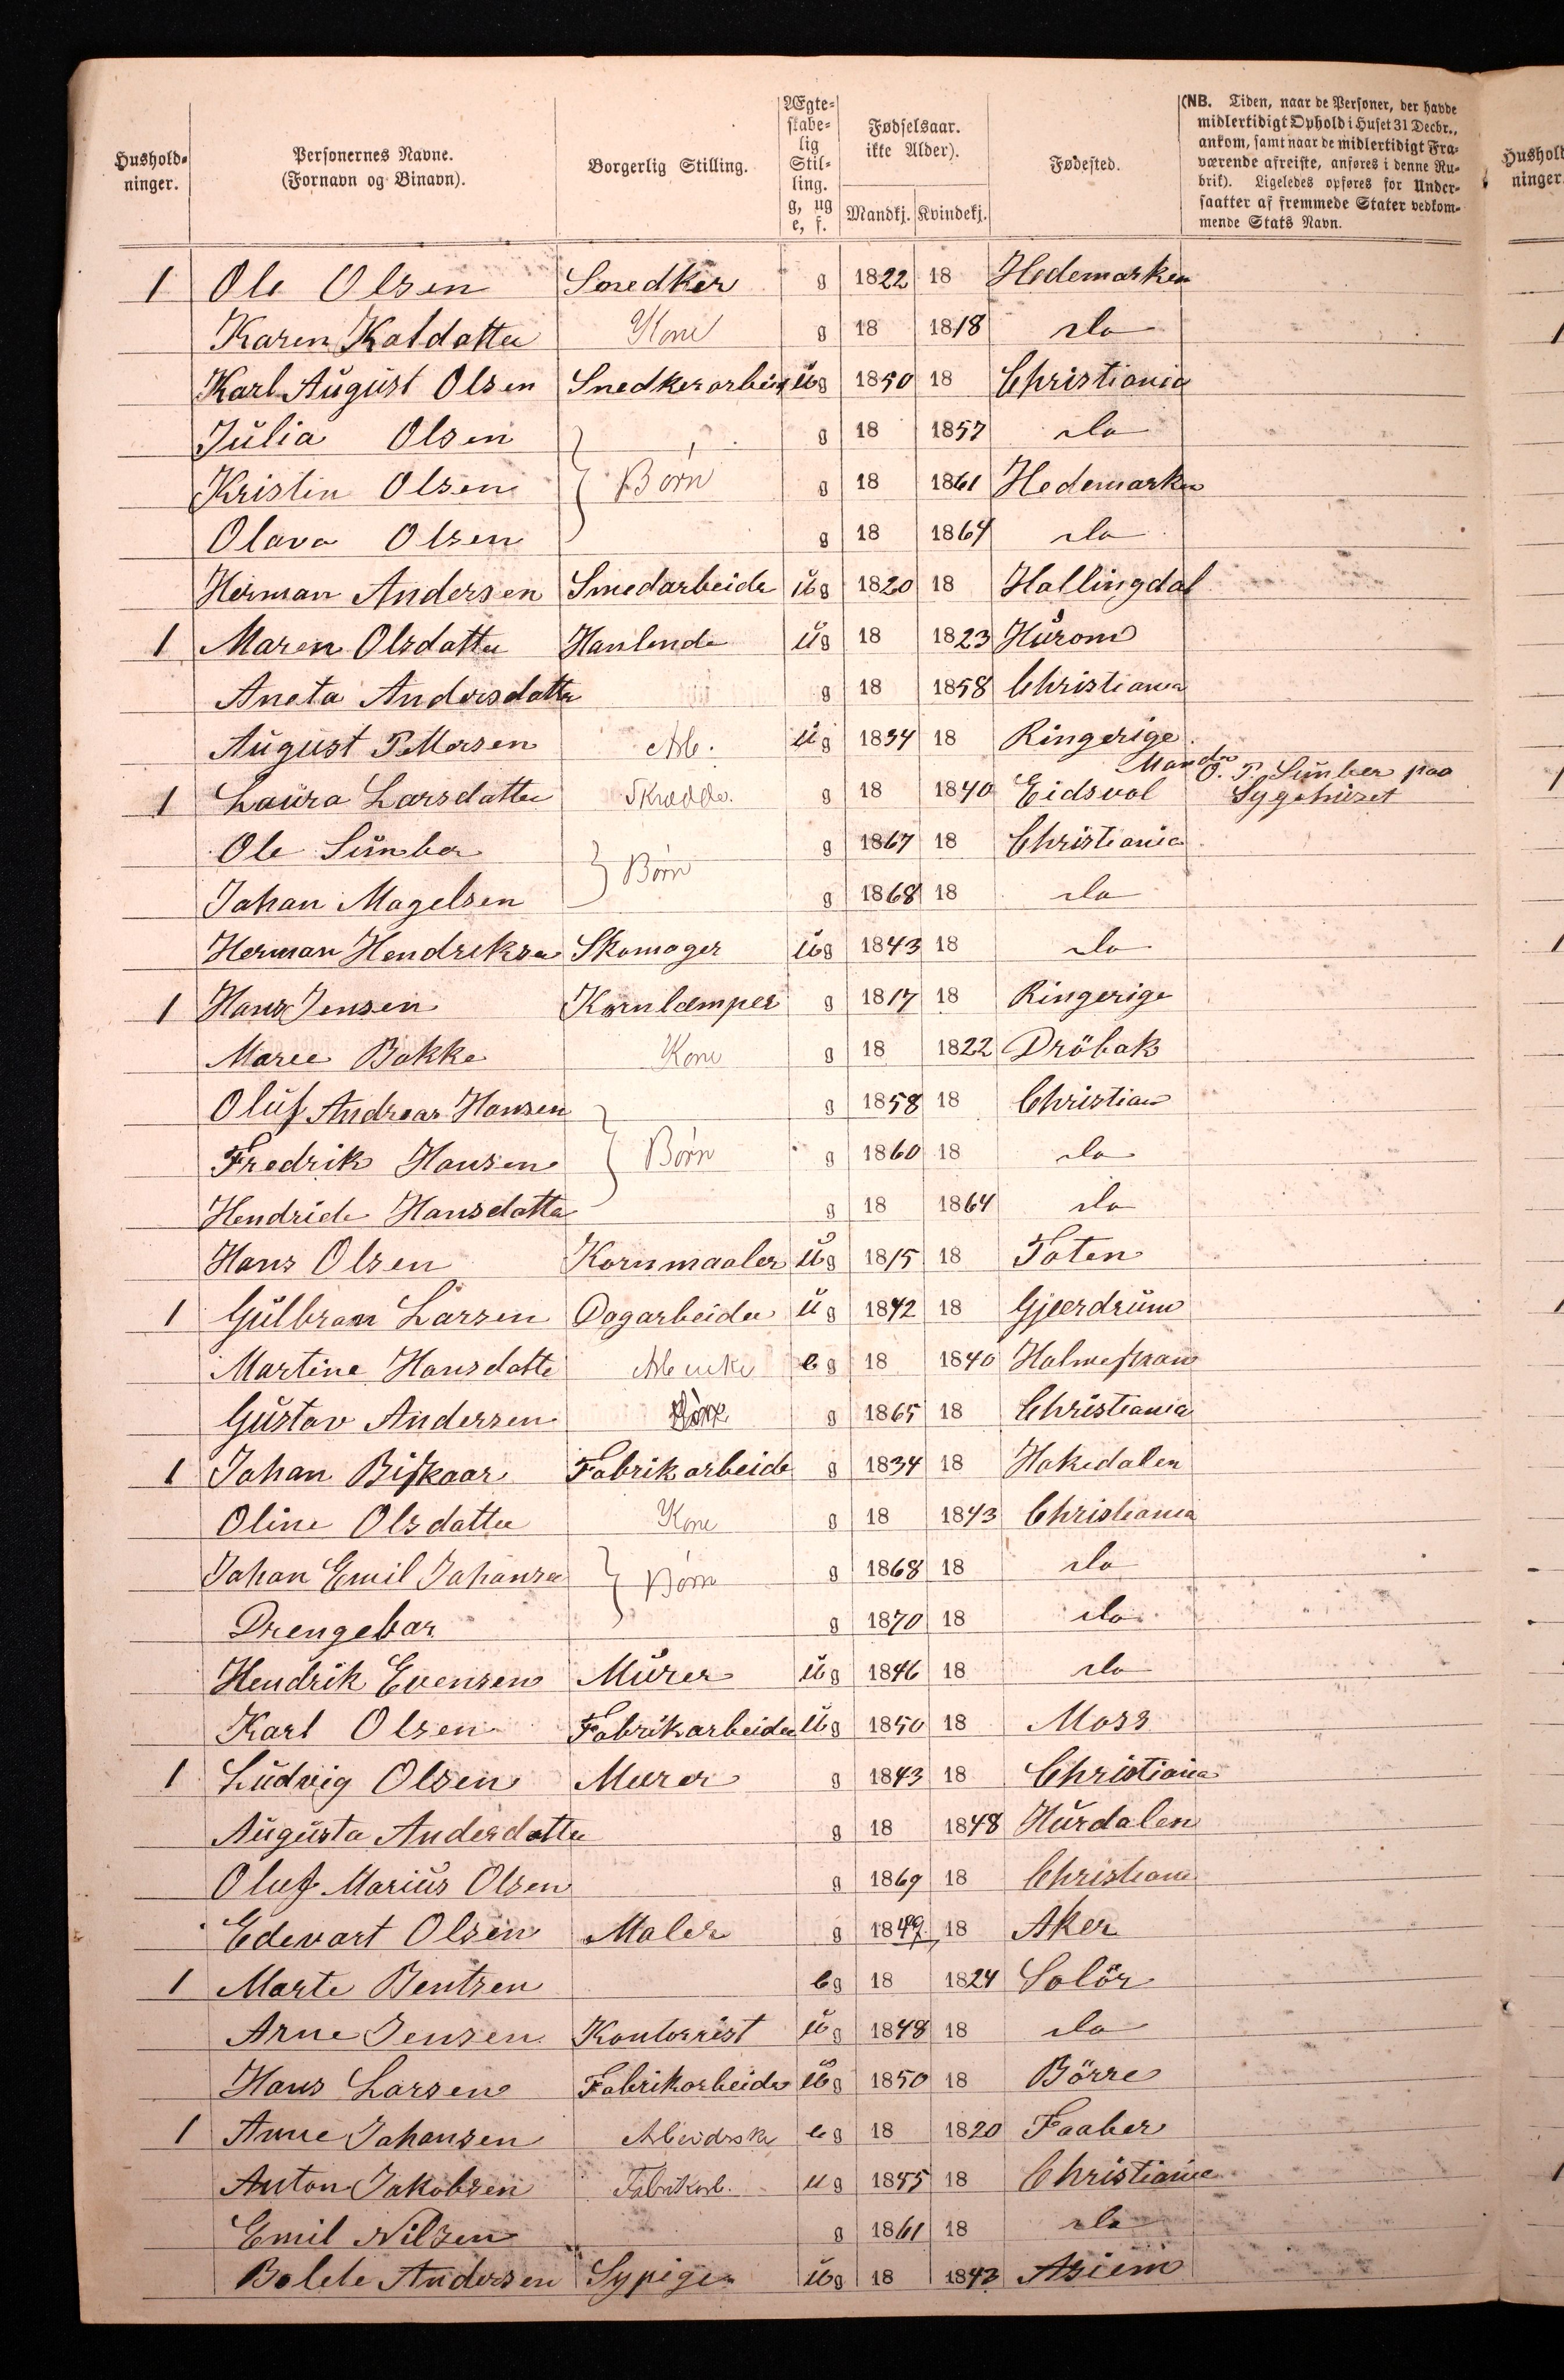 Hushold-
ninger.
Personernes Navne.
(Fornavn og Binavn).
Borgerlig Stilling.
Ægte-
skabe-
lig
Stil-
ling.
g, ug
e, f.
Fødselsaar.
ikke Alder).
Mandkj. Kvindekj.
Fødested.
(NB. Tiden, naar de Personer, der havde
midlertidigt Ophold i Huset 31 Decbr.,
ankom, samt naar de midlertidigt Fra-
værende afreiste, anføres i denne Ru-
brik). Ligeledes opføres for Under-
saatter af fremmede Stater vedkom-
mende Stats Navn.
Hushold
ninger
1 Ole Olsen Snedker g 1822 18 Hedemarken
Karen Kaldatter Kone g 18 1818 do
Karl August Olsen Snedkerarbeid ug 1850 18 Christiania
Julia Olsen g 18 1857 do
Kristin Olsen Børn g 18 1861 Hedemarken
Olava Olsen g 18 1864 do
Herman Andersen Smedarbeider ug 1820 18 Hallingdal
1 Maren Olsdatter Hanlende ug 18 1823 Hurom
Aneta Andersdatter g 18 1858 Christiania
August Pettersen Arb. ug 1834 18 Ringerige
1 Laura Larsdatter Skrædde. g 18 1840 Eidsvol Manden O. P. Simber paa
Sygehuset
Ole Simber g 1867 18 Christiania
Johan Magelsen Børn g 1868 18 do
Herman Hendriksen Skomager ug 1843 18 do
1 Hans Jensen Kornlemper g 1817 18 Ringerige
Maree Bakke Kone g 18 1822 Dröbak
Oluf Andreas Hansen g 1858 18 Christian
Fredrik Hansen Børn g 1860 18 do
Hendride Hansdatter g 18 1864 do
Hans Olsen Kornmaaler ug 1815 18 Toten
1 Gulbran Larsen Dagarbeider ug 1842 18 Gjerdrum
Martine Hansdatter eg 18 1840 Holmestran
Gustav Andersen g 1865 18 Christiania
1 Johan Biskaar Fabrikarbeider g 1834 18 Hakedalen
Oline Olsdatter Kone g 18 1843 Christiania
Johan Emil Johansen Børn g 1868 18 do
Drengebar g 1870 18 do
Hendrik Evensen Murer ug 1846 18 do
Karl Olsen Fabrikarbeider ug 1850 18 Moss
1 Ludvig Olsen Murer g 1843 18 Christiania
Augusta Anderdatter g 18 1848 Hurdalen
Oluf Marius Olsen g 1869 18 Christiania
Edevart Olsen Maler g 1849 18 Aker
1 Marte Bentsen eg 18 1824 Solör
Arne Jensen Kontorrist ug 1848 18 do
Hans Larsen Fabrikarbeider ug 1850 18 Börre
1 Anne Johansen Arbeiderske eg 18 1820 Faaber
Anton Jakobsen Fabrikarb. ug 1855 18 Christiania
Emil Nilsen g 1861 18 do
Bolete Andersen Sypige ug 18 1843 Asiem